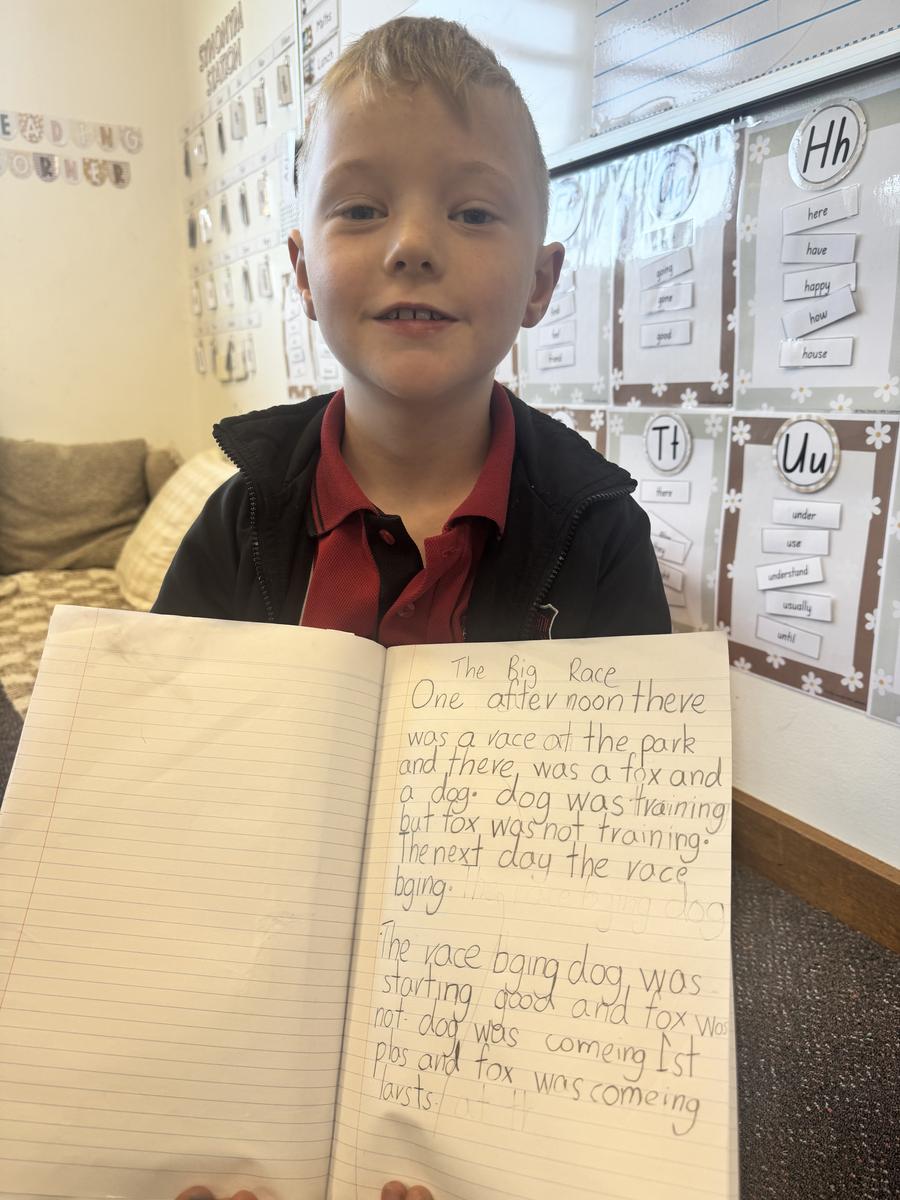 SYNONYM
STATION
READING
CORNER
Lunch
Hh
here
have
happy
how
house
going
gone
good
friend
Tt
there
Uu
under
use
understand
usually
until
The Big Race
One after noon there
was a race at the park
and there was a fox and
a dog. dog was training
but fox was not training.
The next day the race
bging.
The race bging dog was
starting good and fox was
not. dog was comeing 1st
plas and fox was comeing
larsts.